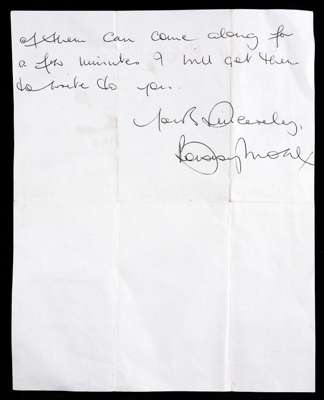 of them can come along for
a few minutes I will get them
to write to you.
Yours Sincerely,
Bobby Moore